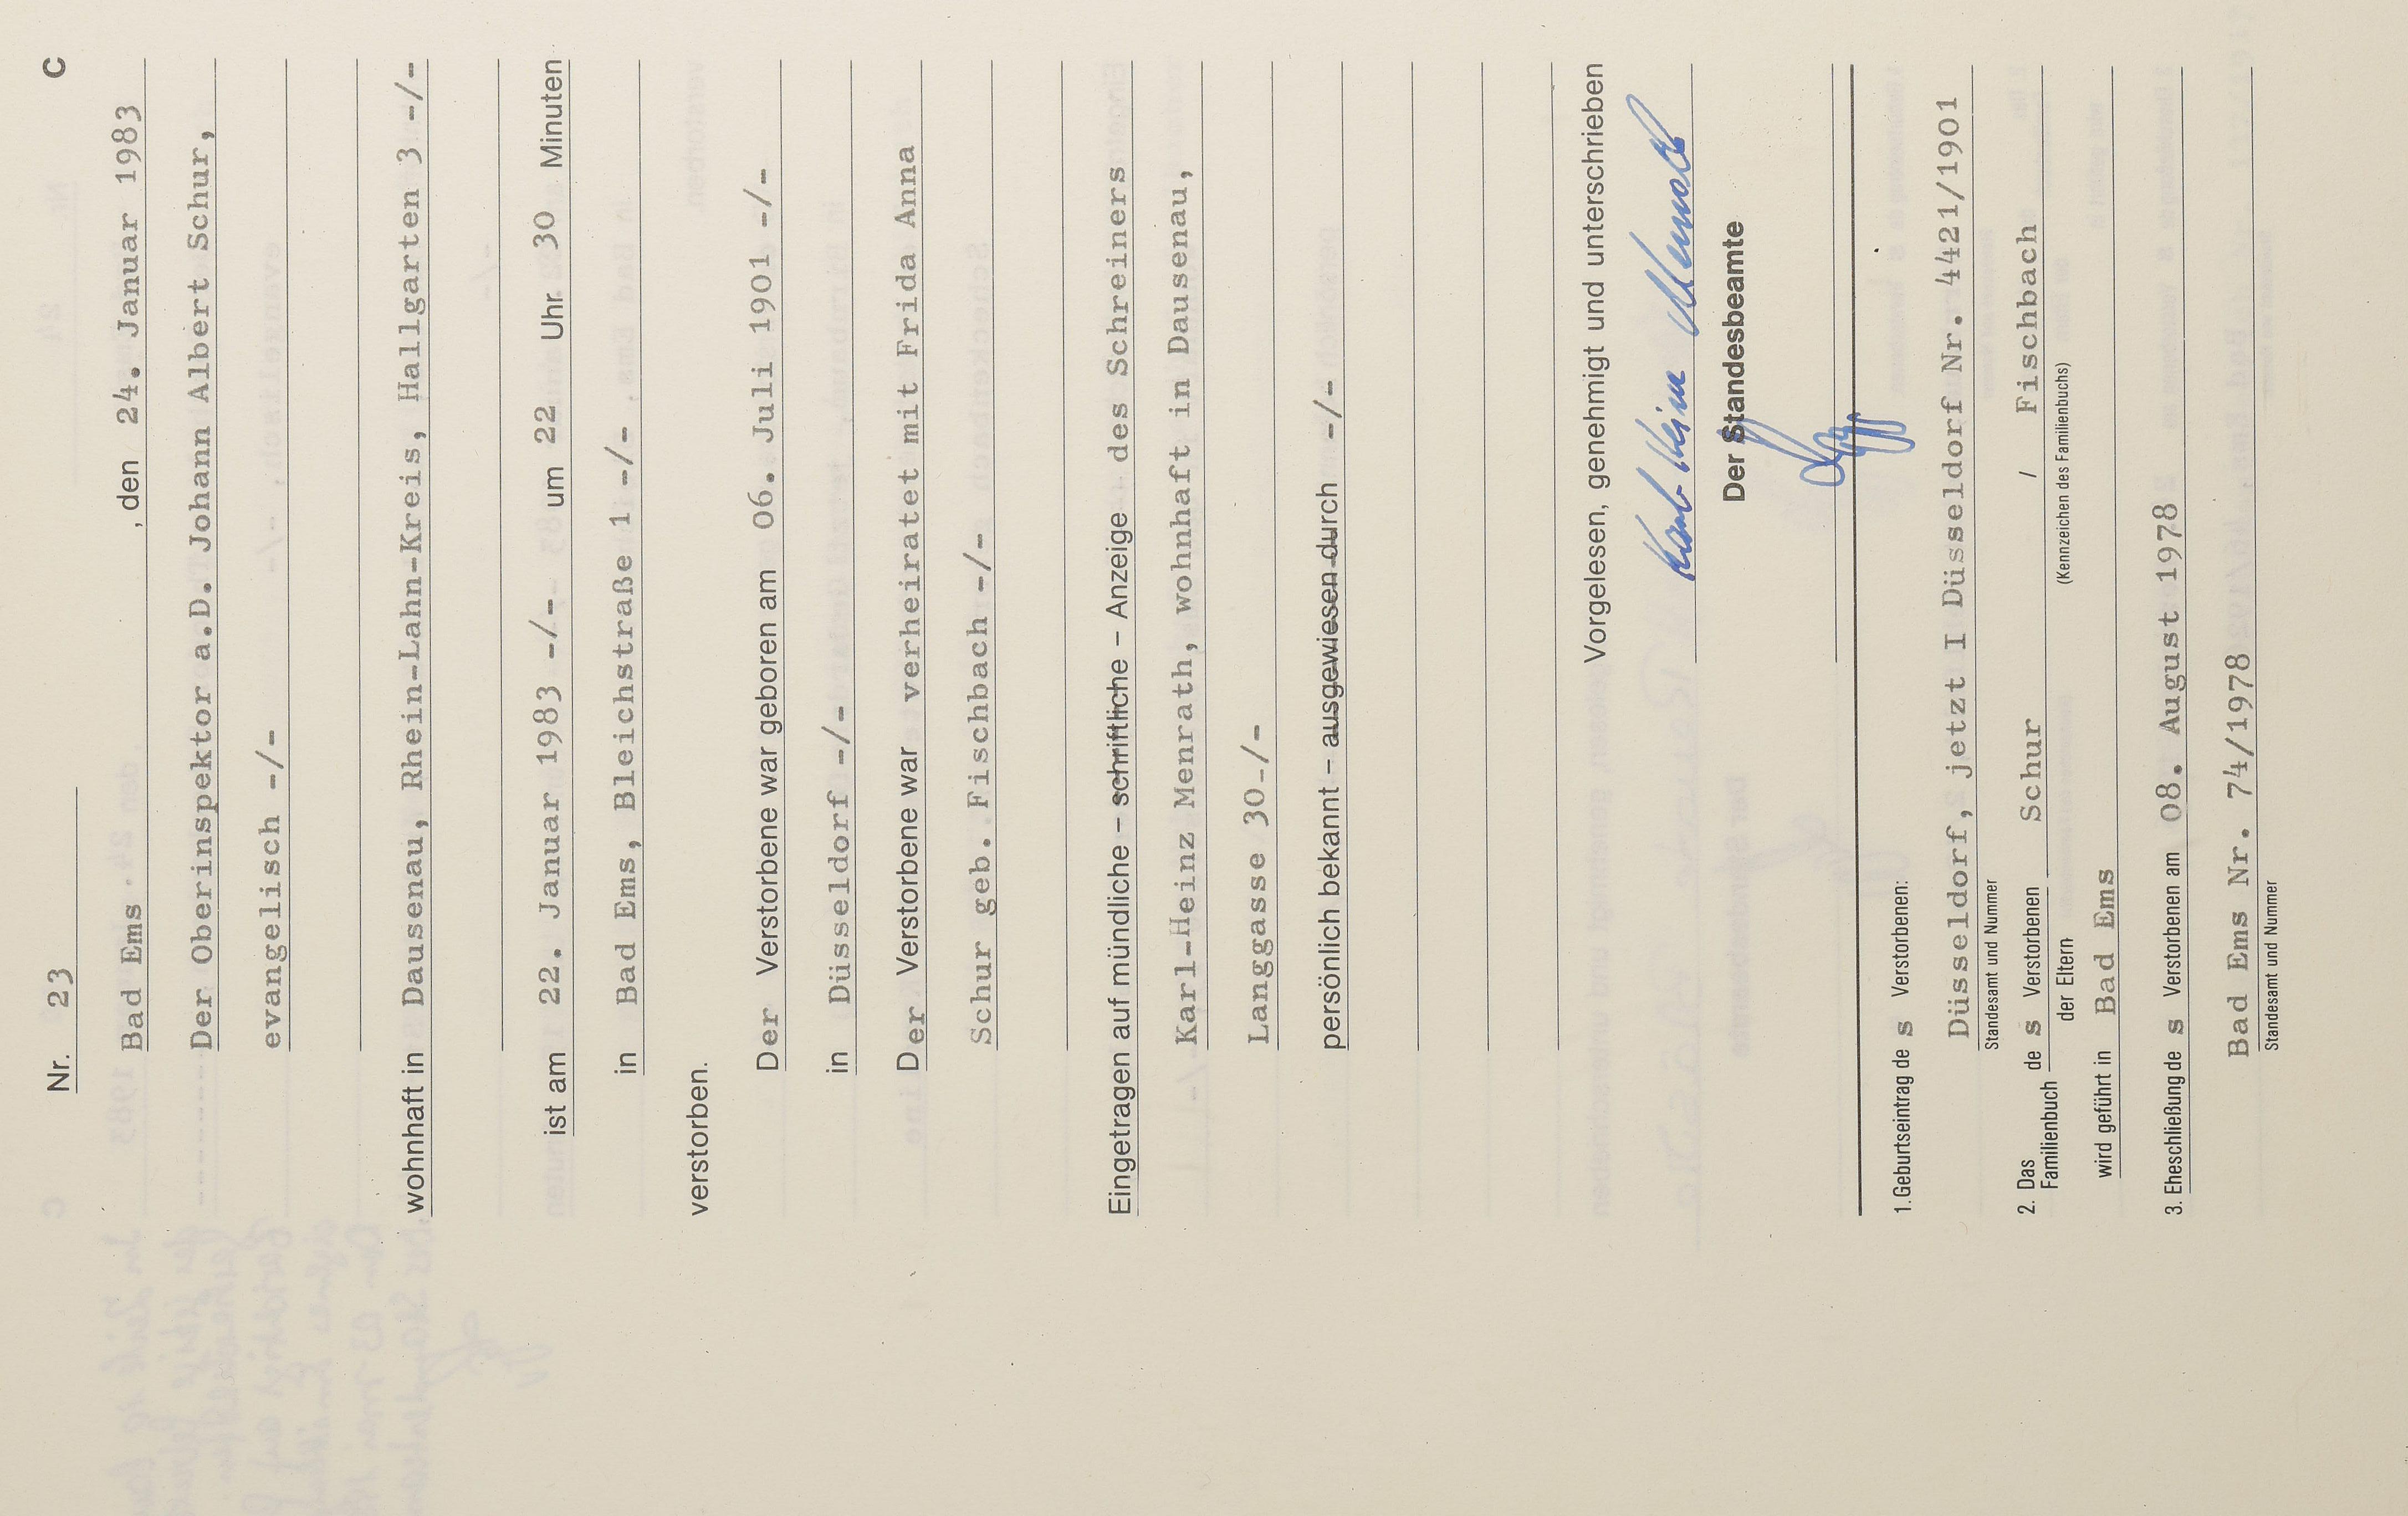 Nr. 23 C
Bad Ems , den 24. Januar 1983
Der Oberinspektor a.D. Johann Albert Schur,
evangelisch -/-
wohnhaft in Dausenau, Rhein-Lahn-Kreis, Hallgarten 3 -/-
ist am 22. Januar 1983 -/- um 22 Uhr 30 Minuten
in Bad Ems, Bleichstraße 1 -/-
verstorben.
Der Verstorbene war geboren am 06. Juli 1901 -/-
in Düsseldorf -/-
Der Verstorbene war verheiratet mit Frida Anna
Schur geb. Fischbach -/-
Eingetragen auf mündliche – schriftliche – Anzeige des Schreiners
Karl-Heinz Menrath, wohnhaft in Dausenau,
Langgasse 30 -/-
persönlich bekannt – ausgewiesen durch -/-
Vorgelesen, genehmigt und unterschrieben
Karl-Heinz Menrath
Der Standesbeamte
1. Geburtseintrag des Verstorbenen:
Düsseldorf, jetzt I Düsseldorf Nr. 4421/1901
Standesamt und Nummer
2. Das Familienbuch des Verstorbenen Schur / Fischbach
der Eltern (Kennzeichen des Familienbuchs)
wird geführt in Bad Ems
3. Eheschließung des Verstorbenen am 08. August 1978
Bad Ems Nr. 74/1978
Standesamt und Nummer